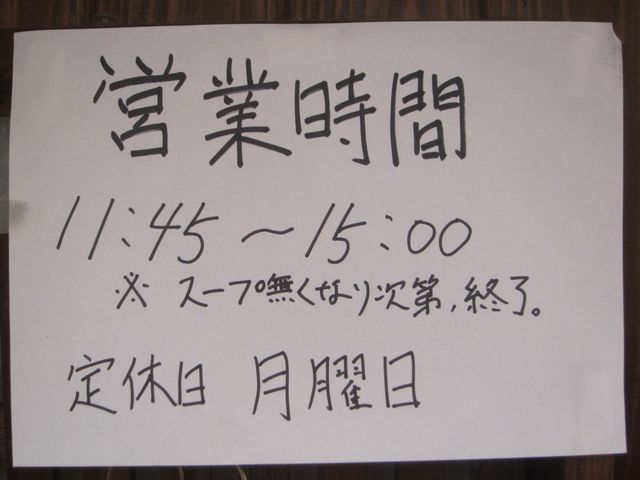 営業時間
11:45～15:00
※ スープ無くなり次第,終了。
定休日 月曜日